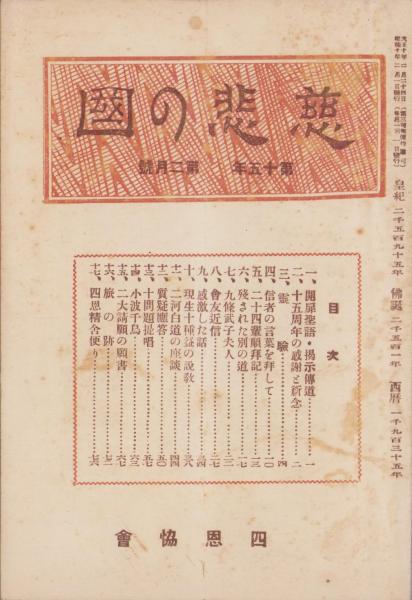 皇紀 二千五百九十五年 佛誕 二千五百一年 西暦 一千九百三十五年
慈悲の國
第十五年 第二月號
目次
一、開扉聖語・揭示傳道……一
二、十五周年の感謝と新念……二
三、靈驗……四
四、信者の言葉を拜して……一〇
五、二十四輩順拜記……一三
六、殘された別の道……一七
七、九條武子夫人……
八、會友近信……
九、感激した話……
十、現生十種益の説敎……三八
十一、二河白道の座談……四四
十二、質疑應答……五〇
十三、十問題提唱……五七
十四、小波千鳥……六三
十五、二大請願の願書……六七
十六、旅の跡……
十七、四恩精舍便り……七六
四恩協會